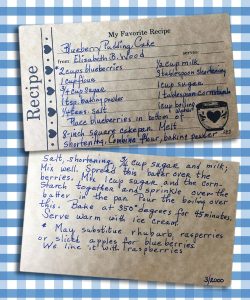 Recipe
My Favorite Recipe
Blueberry Pudding Cake
from: Elizabeth B. Wood serves:
2 cups blueberries ½ cup milk
1 cup flour 3 tablespoon shortening
¾ cup sugar 1 cup sugar
1 tsp. baking powder 1 tablespoon cornstarch
¼ teas. salt 1 cup boiling
Place blueberries in bottom of
8-inch square cakepan. Melt
shortening. Combine flour, baking powder
Salt, shortening, ¾ cup sugar and milk;
Mix well. Spread this batter over the
berries. Mix 1 cup sugar and the corn-
Starch together and sprinkle over the
batter in the pan. Pour the boiling over
this. Bake at 350° degrees for 45 minutes.
Serve warm with ice cream.
* May substitute rhubarb, raspberries
or sliced apples for blueberries
We like it with raspberries
3/2000